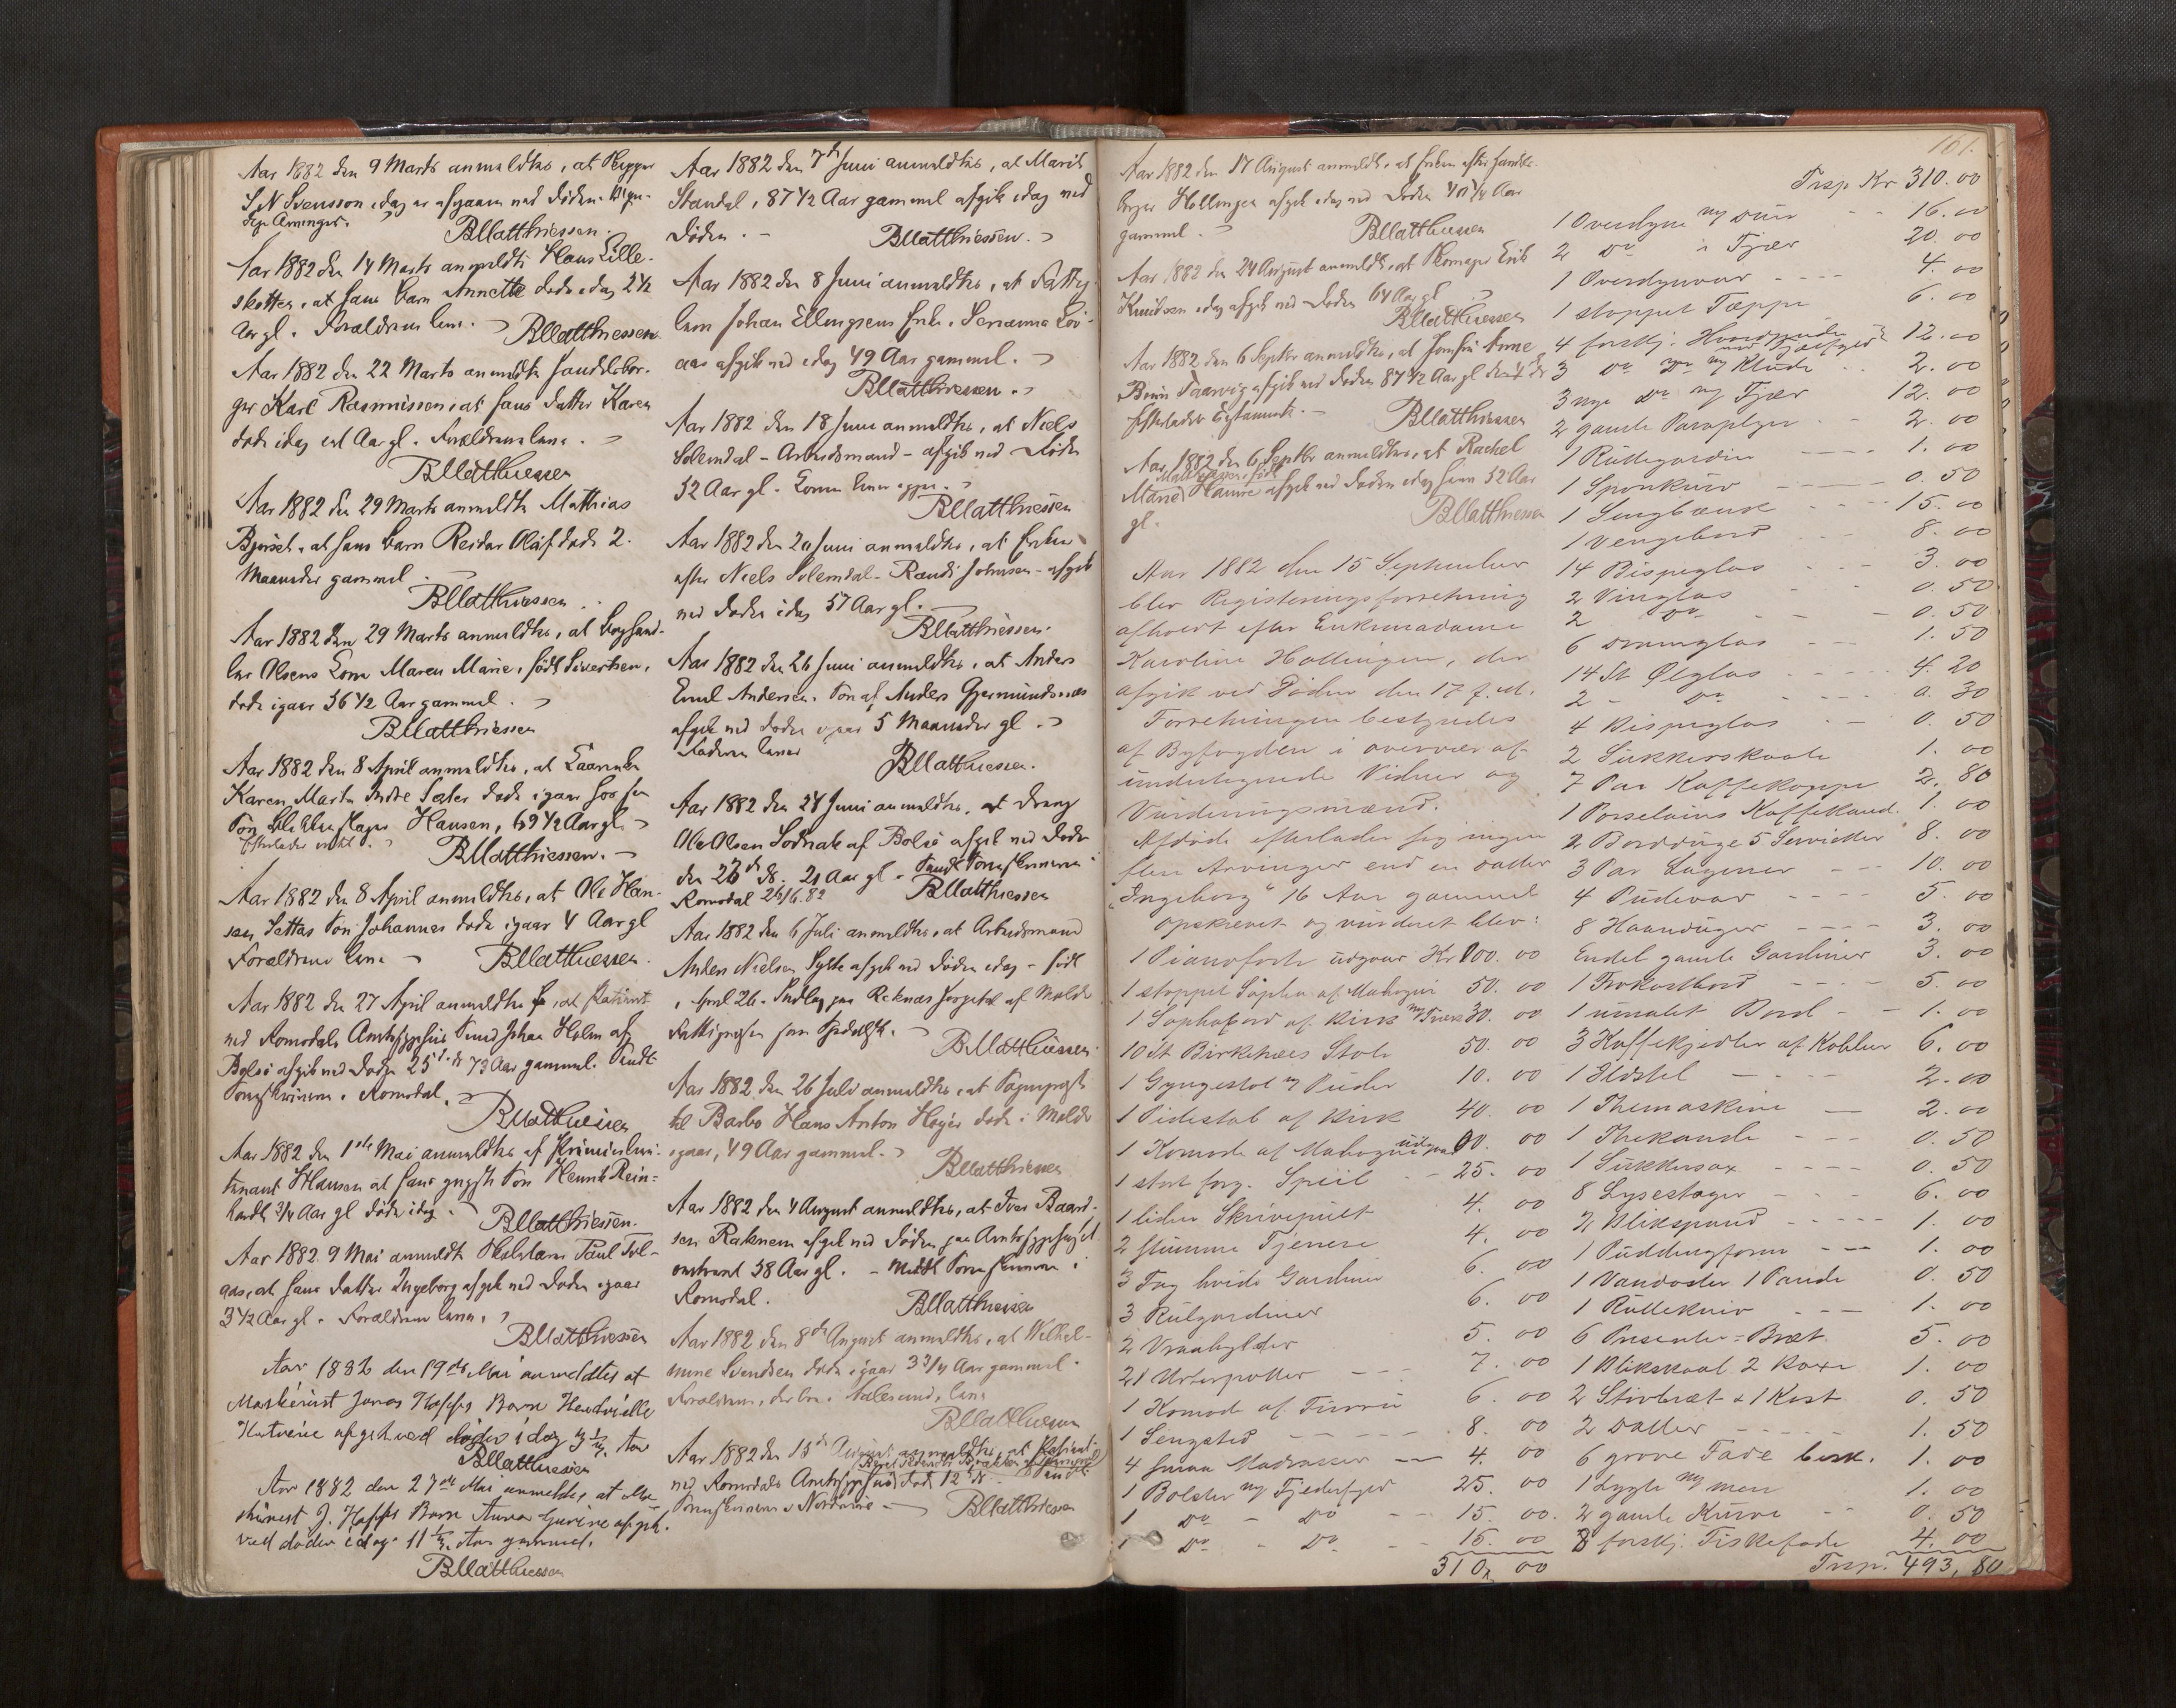 Aar 1882 den 9 Marts anmeldtes, at Skipper
S N Svensson idag er afgaaen ved Døden.
Arvinger.
BMatthiessen.
Aar 1882 den 14 Marts anmeldte Hans Lille-
skotten, at hans Barn Annette døde idag 2 1/2
Aar gl. Forældrene leve.
BMatthiessen
Aar 1882 den 22 Marts anmeldte Handelsbor-
ger Karl Rasmussen, at hans Datter Karen
døde idag et Aar gl. Forældrene leve.
BMatthiessen
Aar 1882 den 29 Marts anmeldte Mathias
Bjørset, at hans Barn Reidar Olaf døde 2
Maaneder gammel.
BMatthiessen.
Aar 1882 den 29 Marts anmeldtes, at
Olsens Kone Maren Marie, født Sivertsen,
døde igaar 36 1/2 Aar gammel.
BMatthiessen
Aar 1882 den 8 April anmeldtes, at
Karen Marta døde igaar hos sin
Søn Hansen, 69 1/2 Aar gl.
Efterlader
BMatthiessen.
Aar 1882 den 8 April anmeldtes, at Ole Han-
sen Søn Johannes døde igaar 4 Aar gl
Forældrene leve
BMatthiessen.
Aar 1882 den 27 April anmeldtes, at Patient
ved Romsdals Amtssygehus Johan Holm af
Bolsø afgik ved Døden 25 d.M. 73 Aar gammel. Sendt
Sorenskriveren i Romsdal.
BMatthiessen
Aar 1882 den 1ste Mai anmeldtes af Premierlieu-
tenant Hansen at hans yngste Søn Henrik Rein-
hardt 3/4 Aar gl døde idag.
BMatthiessen.
Aar 1882 9 Mai anmeldte Skolelærer Paul
aas, at hans Datter Ingeborg afgik ved Døden igaar
3 1/2 Aar gl. Forældrene leve.
BMatthiessen
Aar 1882 den 19de Mai anmeldtes at
Maskinist Jonas Hoffs Barn
afgik ved døden idag 3 1/2 Aar
BMatthiessen
Aar 1882 den 27de Mai anmeldtes at Ma-
skinist J. Hoffs Barn Anna Gurine afgik
ved døden idag 11 1/2 Aar gammel.
BMatthiessen
Aar 1882 den 7de Juni anmeldtes, at Marit
Standal, 87 1/2 Aar gammel afgik idag ved
Døden.
BMatthiessen.
Aar 1882 den 8 Juni anmeldtes, at Fattig-
lem Johan Ellingsens Enke, Serianna
aas afgik ved idag 49 Aar gammel.
BMatthiessen.
Aar 1882 den 18 Juni anmeldtes, at Niels
Solemdal - Arbeidsmand - afgik ved Døden
52 Aar gl. Konen lever
BMatthiessen
Aar 1882 den 20 Juni anmeldtes, at Enken
efter Niels Solemdal - Randi Johnsen - afgik
ved Døden idag 57 Aar gl.
BMatthiessen.
Aar 1882 den 26 Juni anmeldtes, at Anders
Emil Andersen, Søn af Anders Gjermundsnæs
afgik ved Døden igaar 5 Maaneder gl.
Faderen lever
BMatthiessen.
Aar 1882 den 28 Juni anmeldtes, at Dreng
Ole Olsen af Bolsø afgik ved Døden
den 26 ds. 21 Aar gl. Sendt Sorenskriveren i
Romsdal 28/6.82
BMatthiessen
Aar 1882 den 6 Juli anmeldtes, at Arbeidsmand
Anders Nielsen Sylte afgik ved Døden idag - født
i April 26. Indlag paa Reknæs forpleiet af Molde
Fattigvæsen som Spedalsk.
BMatthiessen
Aar 1882 den 26 Juli anmeldtes, at Sogneprest
til Barbo Hans Anton Høyer døde i Molde
igaar, 49 Aar gammel.
BMatthiessen
Aar 1882 den 4 August anmeldtes, at Iver Baard-
sen Raknem afgik ved Døden paa Amtssygehuset
omtrent 58 Aar gl. - Meddelt Sorenskriveren i
Romsdal.
BMatthiessen
Aar 1882 den 8de August anmeldtes, at Wilhel-
mine Svendsen døde igaar 3 3/4 Aar gammel.
Forældrene, der bor i Aalesund, leve
BMatthiessen
Aar 1882 den 15de August anmeldtes, at Patient
ved Romsdals Amtssygehus døde 12 ds. Sendt
Sorenskriveren i Nordmøre
BMatthiessen
161.
Aar 1882 den 17 August anmeldtes, at Enken efter Handels-
borger Hollingen afgik idag ved Døden 40 1/4 Aar
gammel.
BMatthiessen
Aar 1882 den 24 August anmeldtes, at Skomager Erik
Knudsen idag afgik ved Døden 64 Aar gl
BMatthiessen
Aar 1882 den 6 Septbr anmeldtes, at Jomfru Anne
afgik ved Døden 87 1/2 Aar gl
efterlader Testamente.
BMatthiessen
Aar 1882 den 6 Septbr anmeldtes, at Rachel
Mathiassen født
Marie Hanne afgik ved Døden idag 52 Aar
gl.
BMatthiessen
Aar 1882 den 15 September
blev Registeringsforretning
afholdt efter Enkemadame
Karoline Hollingen, der
afgik ved Døden den 17 f.M.
Forretningen bestyredes
af Byfogden i overvær af
undertegnede Vidner og
Vurderingsmænd.
Afdøde efterlader sig ingen
flere Arvinger end en datter
"Ingeborg" 16 Aar gammel
Opskrevet og vurderet blev:
1 Pianoforte udgaar Kr 100. 00
1 stoppet Sopha af Mahogni 50. 00
1 Sophabord af Birk 30. 00
10 St Birketræes Stole 50. 00
1 Gyngestol m Puder 10. 00
1 Pidestal af Birk 40. 00
1 Komode af Mahogni udgaar 00. 00
1 stort forg. Speil 25. 00
1 liden Skrivepult 4. 00
2 stumme Tjenere 4. 00
3 Fag hvide Gardiner 6. 00
3 Rulgardiner 6. 00
2 Vraahylder 5. 00
21 Urtepotter 7. 00
1 Komode af Furru 6. 00
1 Sengsted 8. 00
4 smaa Madrasser 4. 00
1 Bolster m Fjederfyld 25. 00
1 Do - Do 15. 00
1 Do - Do 15. 00
310. 00
Trsp Kr 310. 00
1 Overdyne m Duun 16. 00
2 Do i Fjær 20. 00
1 Overdynvar 4. 00
1 stoppet Tæppe 6. 00
4 forskj. Hovedpuder 12. 00
3 Do Do m Klude 2. 00
3 nye Do m Fjær 12. 00
2 gamle Paraplyer 2. 00
1 Rullegardin 1. 00
1 Sponkurv 0. 50
1 Sengbænk 15. 00
1 Vengebord 8. 00
14 Bispeglas 3. 00
2 Vinglas 0. 50
2 Do 0. 50
6 Dramglas 1. 50
14 St Ølglas 4. 20
2 - Do 0. 30
4 Bispeglas 0. 50
2 Sukkerskaale 1. 00
7 Par Kaffekopper 2. 80
1 Porselains Kaffekand. 1. 00
2 Bordduge 5 Servietter 8. 00
3 Par Lagener 10. 00
4 Pudevar 5. 00
8 Haanduger 3. 00
Endel gamle Gardiner 3. 00
1 Frokostbord 5. 00
1 umalet Bord 1. 00
3 Kaffekjedler af Kobber 6. 00
1 Ildstel 2. 00
1 Themaskine 2. 00
1 Thekande 0. 50
1 Sukkersax 0. 50
8 Lysestager 6. 00
2 Blikspand 1. 00
1 Puddingform 1. 00
1 Vandøster 1 Pande 0. 50
1 Rullekniv 1. 00
6 Presenter-Bræt 5. 00
1 Blikskaal 2 Boxe 1. 00
2 Stivbræt & 1 Kost 0. 50
2 Baller 1. 50
6 grove Fade besk. 1. 00
1 Lygte m mere 1. 00
2 gamle Kurve 0. 50
8 forskj. Fiskefade 4. 00
Trsp. 493, 80